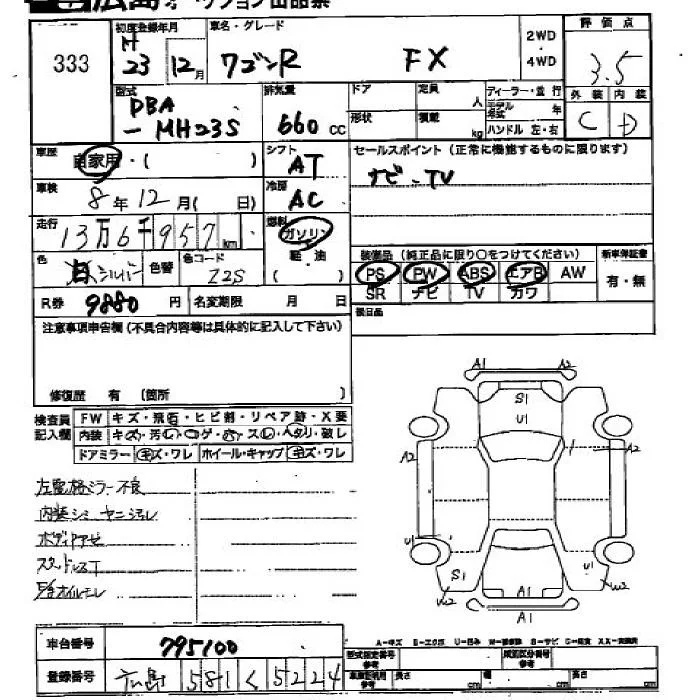 333
初度登録年月
H 23年 12月
車名・グレード
ワゴンR FX
2WD
・
4WD
評価点
3.5
型式
DBA
-MH23S
排気量
660 CC
ドア
形状
定員 人
積載 kg
ディーラー・並行
モデル年式 年
ハンドル 左・右
外装 内装
C D
車歴
自家用・( )
シフト
AT
セールスポイント(正常に機能するものに限ります)
ナビ・TV
車検
8年 12月( 日)
冷房
AC
走行
13万6千957km
燃料
ガソリン
軽・油
色
シルバー
色替
色コード
Z2S
装備品(純正品に限り○をつけてください)
PS PW ABS エアB AW
SR ナビ TV カワ
新車保証書
有・無
R券 9880円
名変期限 月 日
後日品
注意事項申告欄(不具合内容等は具体的に記入して下さい)
修復歴 有 〔箇所 〕
検査員記入欄
FW キズ・飛石・ヒビ割・リペア跡・X要
内装 キズ・汚レ・コゲ・穴・スレ・ヘタリ・破レ
ドアミラー キズ・ワレ ホイール・キャップ キズ・ワレ
左電格ミラー不良
内装シミ ヤニ汚レ
ボディアセ
スタッドレスT
E/gオイルモレ
A1 A2
S1
U1
A2
1
A2
U1
U1
S1
W2
A1
W2
A1
車台番号 795100
登録番号 広島 581 く 5224
A-キズ E-エクボ U-凹み W-補修跡 S-サビ C-腐食 XX-交換済
型式指定番号 参考
類別区分番号 参考
長さ cm 幅 cm 高さ cm